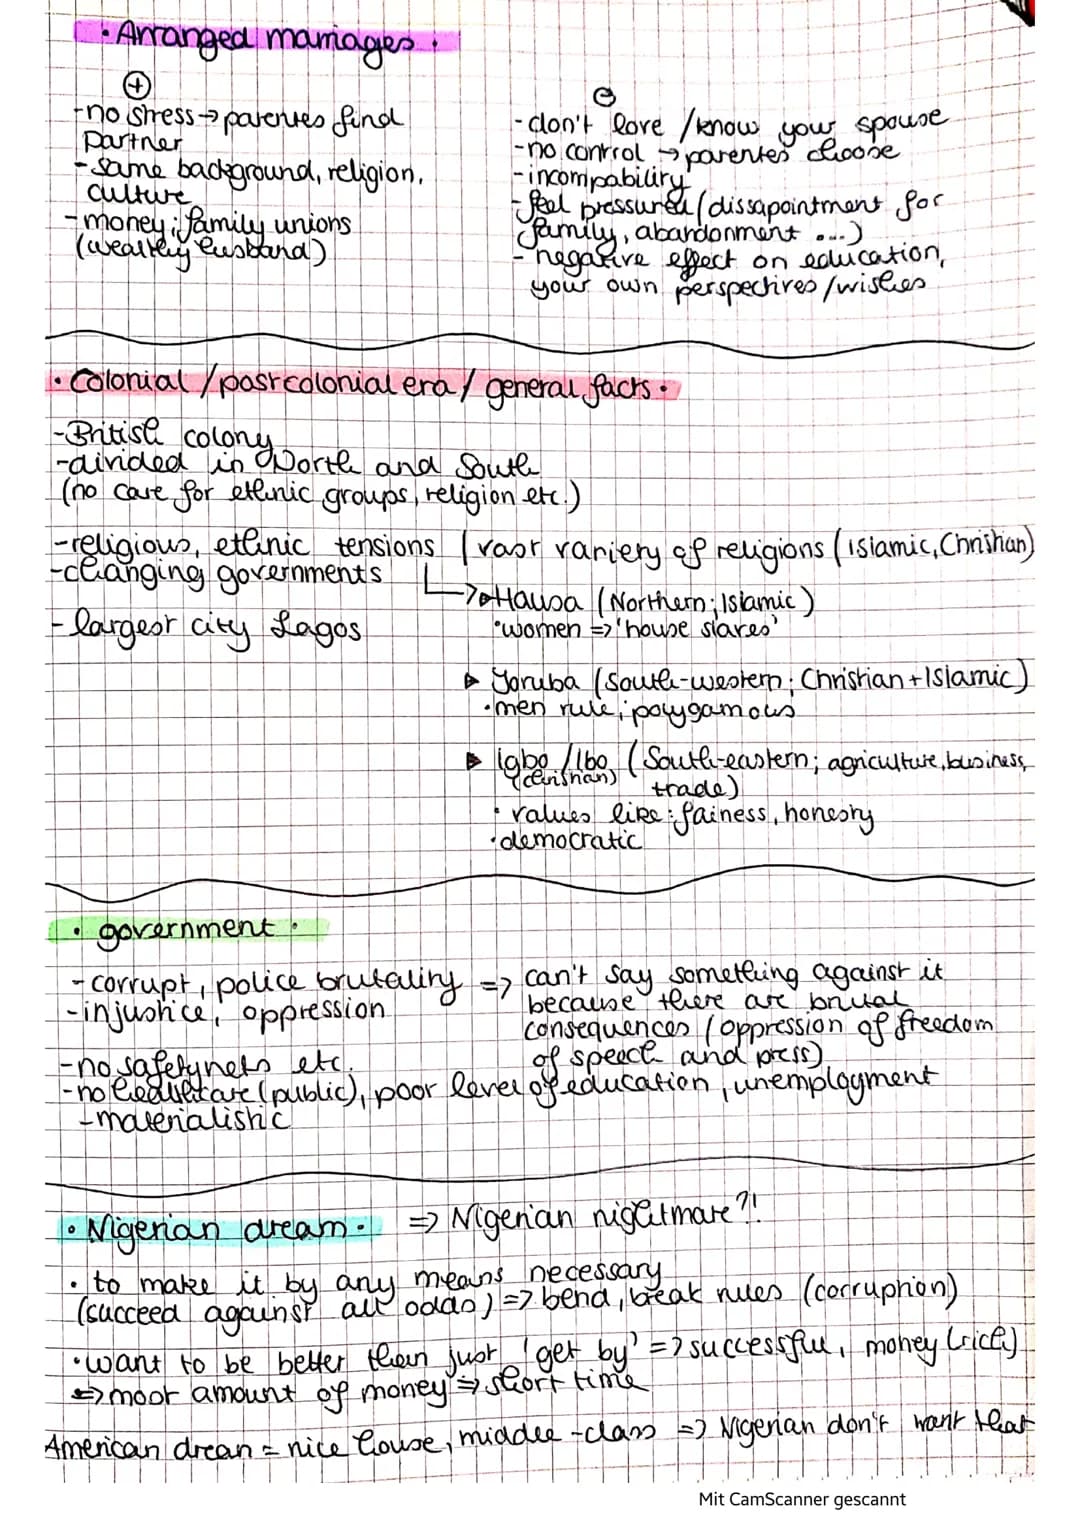 · Arranged marriages ·
⊕
-no stress → parentes find
partner
-same background, religion,
culture
-money; family unions
(wealthy husband)
⊖
-don't love / know your spouse
-no control → parentes choose
-incompability
-feel pressured (dissapointment for
family, abandonment ...)
-negative effect on education,
your own perspectives / wishes
· Colonial / postcolonial era / general facts ·
-British colony
-divided in North and South
(no care for ethnic groups, religion etc.)
-religious, ethnic tensions | vast variery of religions (Islamic, Christian)
-changing governments
-largest city Lagos
→ Hausa (Northern; Islamic)
·women => 'house slaves'
▶ Yoruba (South-western; Christian + Islamic)
·men rule; polygamous
▶ Igbo / Ibo (South-eastern; agriculture, business,
(christian) trade)
· values like: fainess, honesty
·democratic
· government ·
-corrupt, police brutality => can't say something against it
-injustice, oppression because there are brutal
consequences (oppression of freedom
of speech and press)
-no safetynets etc.
-no healthcare (public), poor level of education, unemployment
-materialistic
· Nigerian dream · => Nigerian nightmare?!
· to make it by any means necessary
(succeed against all odds) => bend, break rules (corruption)
·want to be better then just 'get by' => successful, money (rich)
=> most amount of money => short time
American drean = nice house, middle-class => Nigerian don't want that
Mit CamScanner gescannt